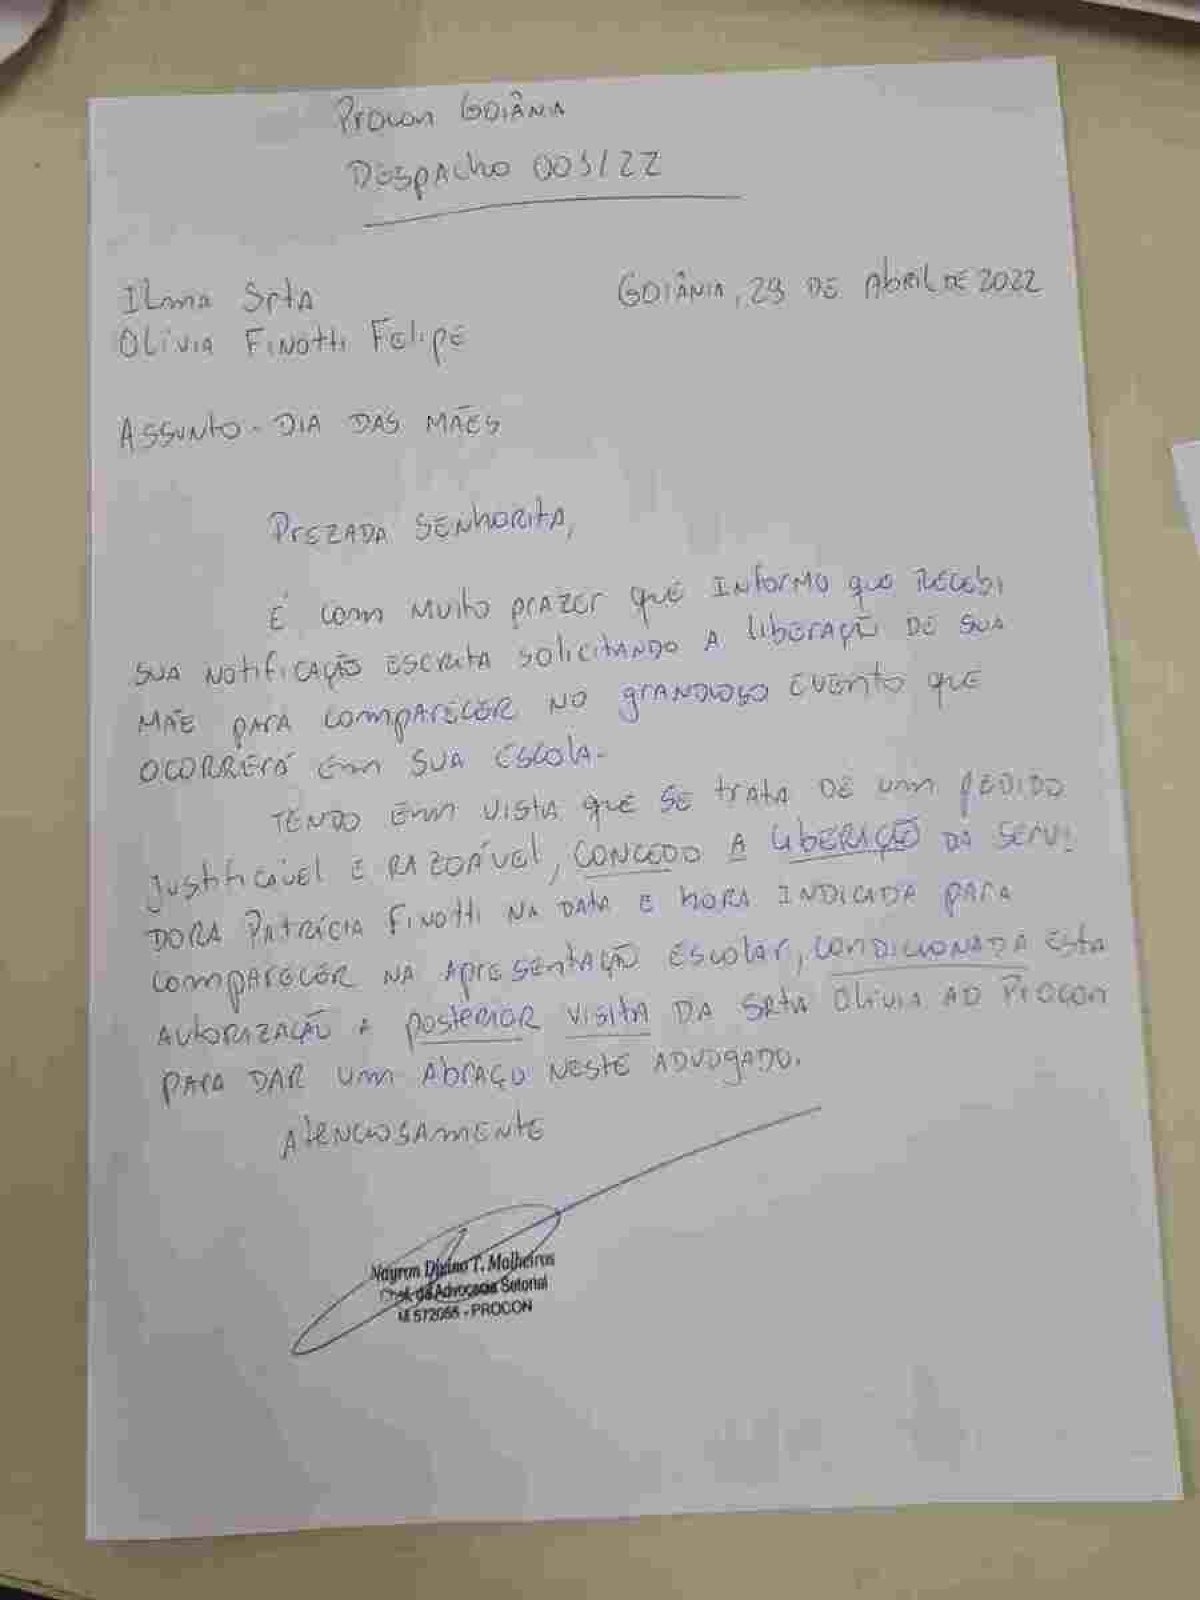 Procon Goiânia
Despacho 003/22
Goiânia, 29 de Abril de 2022
Ilma Srta
Olívia Finotti Felipe
Assunto - Dia das Mães
Prezada Senhorita,
É com muito prazer que informo que recebi
sua notificação escrita solicitando a liberação de sua
mãe para comparecer no grandioso evento que
ocorrerá em sua escola.
Tendo em vista que se trata de um pedido
justificável e razoável, concedo a liberação da servi
dora Patrícia Finotti na data e hora indicada para
comparecer na apresentação escolar, condicionada esta
autorização a posterior visita da Srta Olívia ao Procon
para dar um abraço neste advogado.
Atenciosamente
Nayron Divino T. Malheiros
Chefe da Advocacia Setorial
M 572066 - PROCON